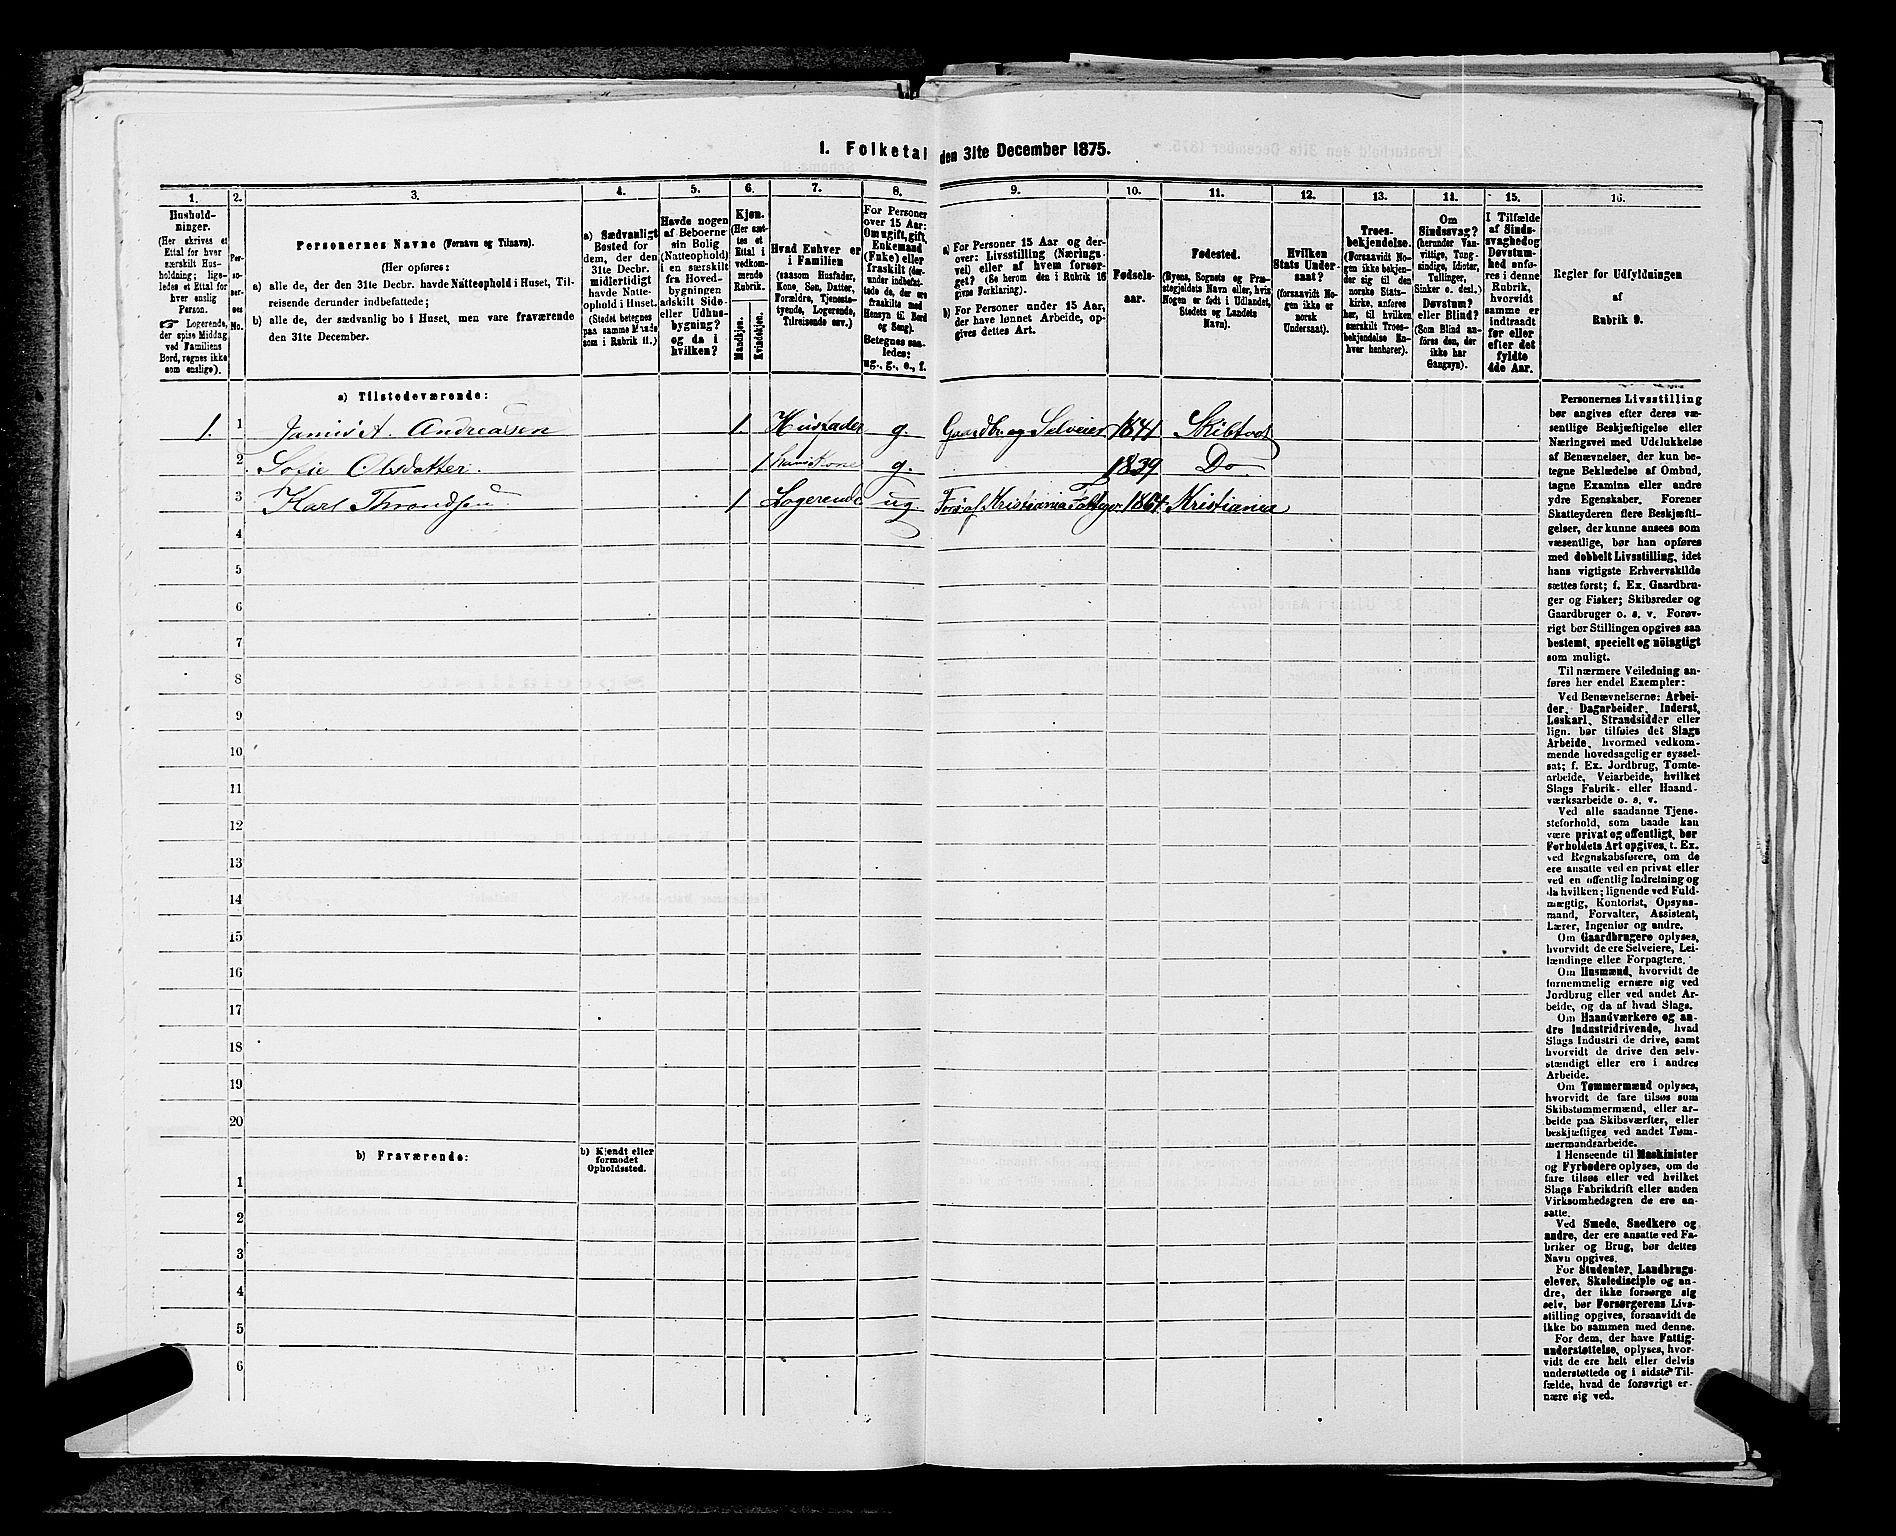 1. Folketal den 31te December 1875.
1. 2. 3. 4. 5. 6. 7. 8. 9. 10. 11. 12. 13. 14. 15. 16.
Hushold-
ninger.
(Her skrives et
Ettal for hver
særskilt Hus-
holdning; lige-
ledes et Ettal for
hver enslig
Person.
☞ Logerende,
der spise Middag
ved Familiens
Bord, regnes ikke
som enslige).
Per-
so-
ner-
nes
No.
Personernes Navne (Fornavn og Tilnavn).
(Her opføres:
a) alle de, der den 31te Decbr. havde Natteophold i Huset, Til-
reisende derunder indbefattede;
b) alle de, der sædvanlig bo i Huset, men vare fraværende
den 31te December.
a) Sædvanligt
Bosted for
dem, der den
31te Decbr.
midlertidigt
havde Natte-
ophold i Huset.
(Stedet betegnes
paa samme Maade
som i Rubrik 11.)
Havde nogen
af Beboerne
sin Bolig
(Natteophold)
i en særskilt
fra Hoved-
bygningen
adskilt Side-
eller Udhus-
bygning?
og da i
hvilken?
Kjøn.
(Her sæt-
tes et
Ettal i
vedkom-
mende
Rubrik.
Mandkjøn.
Kvindekjøn.
Hvad Enhver er
i Familien
(saasom Husfader,
Kone, Søn, Datter,
Forældre, Tjeneste-
tyende, Logerende,
Tilreisende osv.)
For Personer
over 15 Aar:
Om ugift, gift,
Enkemand
(Enke) eller
fraskilt (der-
under indbefat-
tede de, der ere
fraskilte med
Hensyn til Bord
og Seng).
Betegnes saa-
ledes:
ug., g., e., f.
a) For Personer 15 Aar og der-
over: Livsstilling (Nærings-
vei) eller af hvem forsør-
get? (Se herom den i Rubrik 16
givne Forklaring).
b) For Personer under 15 Aar,
der have lønnet Arbeide, op-
gives dettes Art.
Fødsels-
aar.
Fødested.
(Byens, Sognets og Præ-
stegjeldets Navn eller, hvis
Nogen er født i Udlandet,
Stedets og Landets
Navn).
Hvilken
Stats Under-
saat?
(forsaavidt No-
gen ikke er
norsk
Undersaat).
Troes-
bekjendelse.
(Forsaavidt No-
gen ikke bekjen-
der sig til den
norske Stats-
kirke, anføres
her, til hvilken
særskilt Troes-
bekjendelse En-
hver henhører).
Om
Sindssvag?
(herunder Van-
vittige, Tung-
sindige, Idioter,
Tullinger,
Sinker o. desl.)
Døvstum?
eller Blind?
(Som Blind an-
føres den, der
ikke har
Gangsyn).
I Tilfælde
af Sinds-
svaghed og
Døvstum-
hed anfø-
res i denne
Rubrik,
hvorvidt
samme er
indtraadt
før eller
efter det
fyldte
4de Aar.
Regler for Udfyldningen
af
Rubrik 9.
a) Tilstedeværende:
1. 1 A. Andreassen 1 Husfader g. Gaardbr. og Selveier 1841 Skibtvedt
2 Sofie Olsdatter. 1 hans Kone g. 1839 Do
3 Karl Throndsen 1 Logerende ug. Fors. af Kristiania Kristiania
4
5
6
7
8
9
10
11
12
13
14
15
16
17
18
19
20
b) Fraværende:
b) Kjendt eller
formodet
Opholdssted.
1
2
3
4
5
6
Personernes Livsstilling
bør angives efter deres væ-
sentlige Beskjæftigelse eller
Næringsvei med Udelukkelse
af Benævnelser, der kun be-
tegne Beklædelse af Ombud,
tagne Examina eller andre
ydre Egenskaber. Forener
Skatteyderen flere Beskjæfti-
gelser, der kunne ansees som
væsentlige, bør han opføres
med dobbelt Livsstilling, idet
hans vigtigste Erhvervskilde
sættes først; f. Ex. Gaardbru-
ger og Fisker; Skibsreder og
Gaardbruger o. s. v. Forøv-
rigt bør Stillingen opgives saa
bestemt, specielt og nöiagtigt
som muligt.
Til nærmere Veiledning an-
føres her endel Exempler:
Ved Benævnelserne: Arbei-
der, Dagarbeider, Inderst,
Løskarl, Strandsidder eller
lign. bør tilføies det Slags
Arbeide, hvormed vedkom-
mende hovedsagelig er syssel-
sat; f. Ex. Jordbrug, Tomte-
arbeide, Veiarbeide, hvilket
Slags Fabrik- eller Haand-
værksarbeide o. s. v.
Ved alle saadanne Tjene-
steforhold, som baade kan
være privat og offentligt, bør
Forholdets Art opgives, t. Ex.
ved Regnskabsførere, om de
ere ansatte ved en privat eller
ved en offentlig Indretning og
da hvilken; lignende ved Fuld-
mægtig, Kontorist, Opsyns-
mand, Forvalter, Assistent,
Lærer, Ingeniør og andre.
Om Gaardbrugere oplyses,
hvorvidt de ere Selveiere, Lei-
lændinge eller Forpagtere.
Om Husmænd, hvorvidt de
fornemmelig ernære sig ved
Jordbrug eller ved andet Ar-
beide, og da af hvad Slags.
Om Haandværkere og an-
dre Industridrivende, hvad
Slags Industri de drive, samt
hvorvidt de drive den selv-
stændigt eller ere i andres
Arbeide.
Om Tømmermænd oplyses,
hvorvidt de fare tilsøs som
Skibstømmermænd, eller ar-
beide paa Skibsværfter, eller
beskjæftiges ved andet Tøm-
mermandsarbeide.
I Henseende til Maskinister
og Fyrbødere oplyses, om de
fare tilsøs eller ved hvilket
Slags Fabrikdrift eller anden
Virksomhedsgren de ere an-
satte.
Ved Smede, Snedkere og
andre, der ere ansatte ved Fa-
briker og Brug, bør dettes
Navn opgives.
For Studenter, Landbrugs-
elever, Skoledisciple og an-
dre, der ikke forsørge sig
selv, bør Forsørgerens Livs-
stilling opgives, forsaavidt de
ikke bo sammen med denne.
For dem, der have Fattig-
understøttelse, oplyses, hvor-
vidt de ere helt eller delvis
understøttede og i sidste Til-
fælde, hvad de forøvrigt er-
nære sig ved.